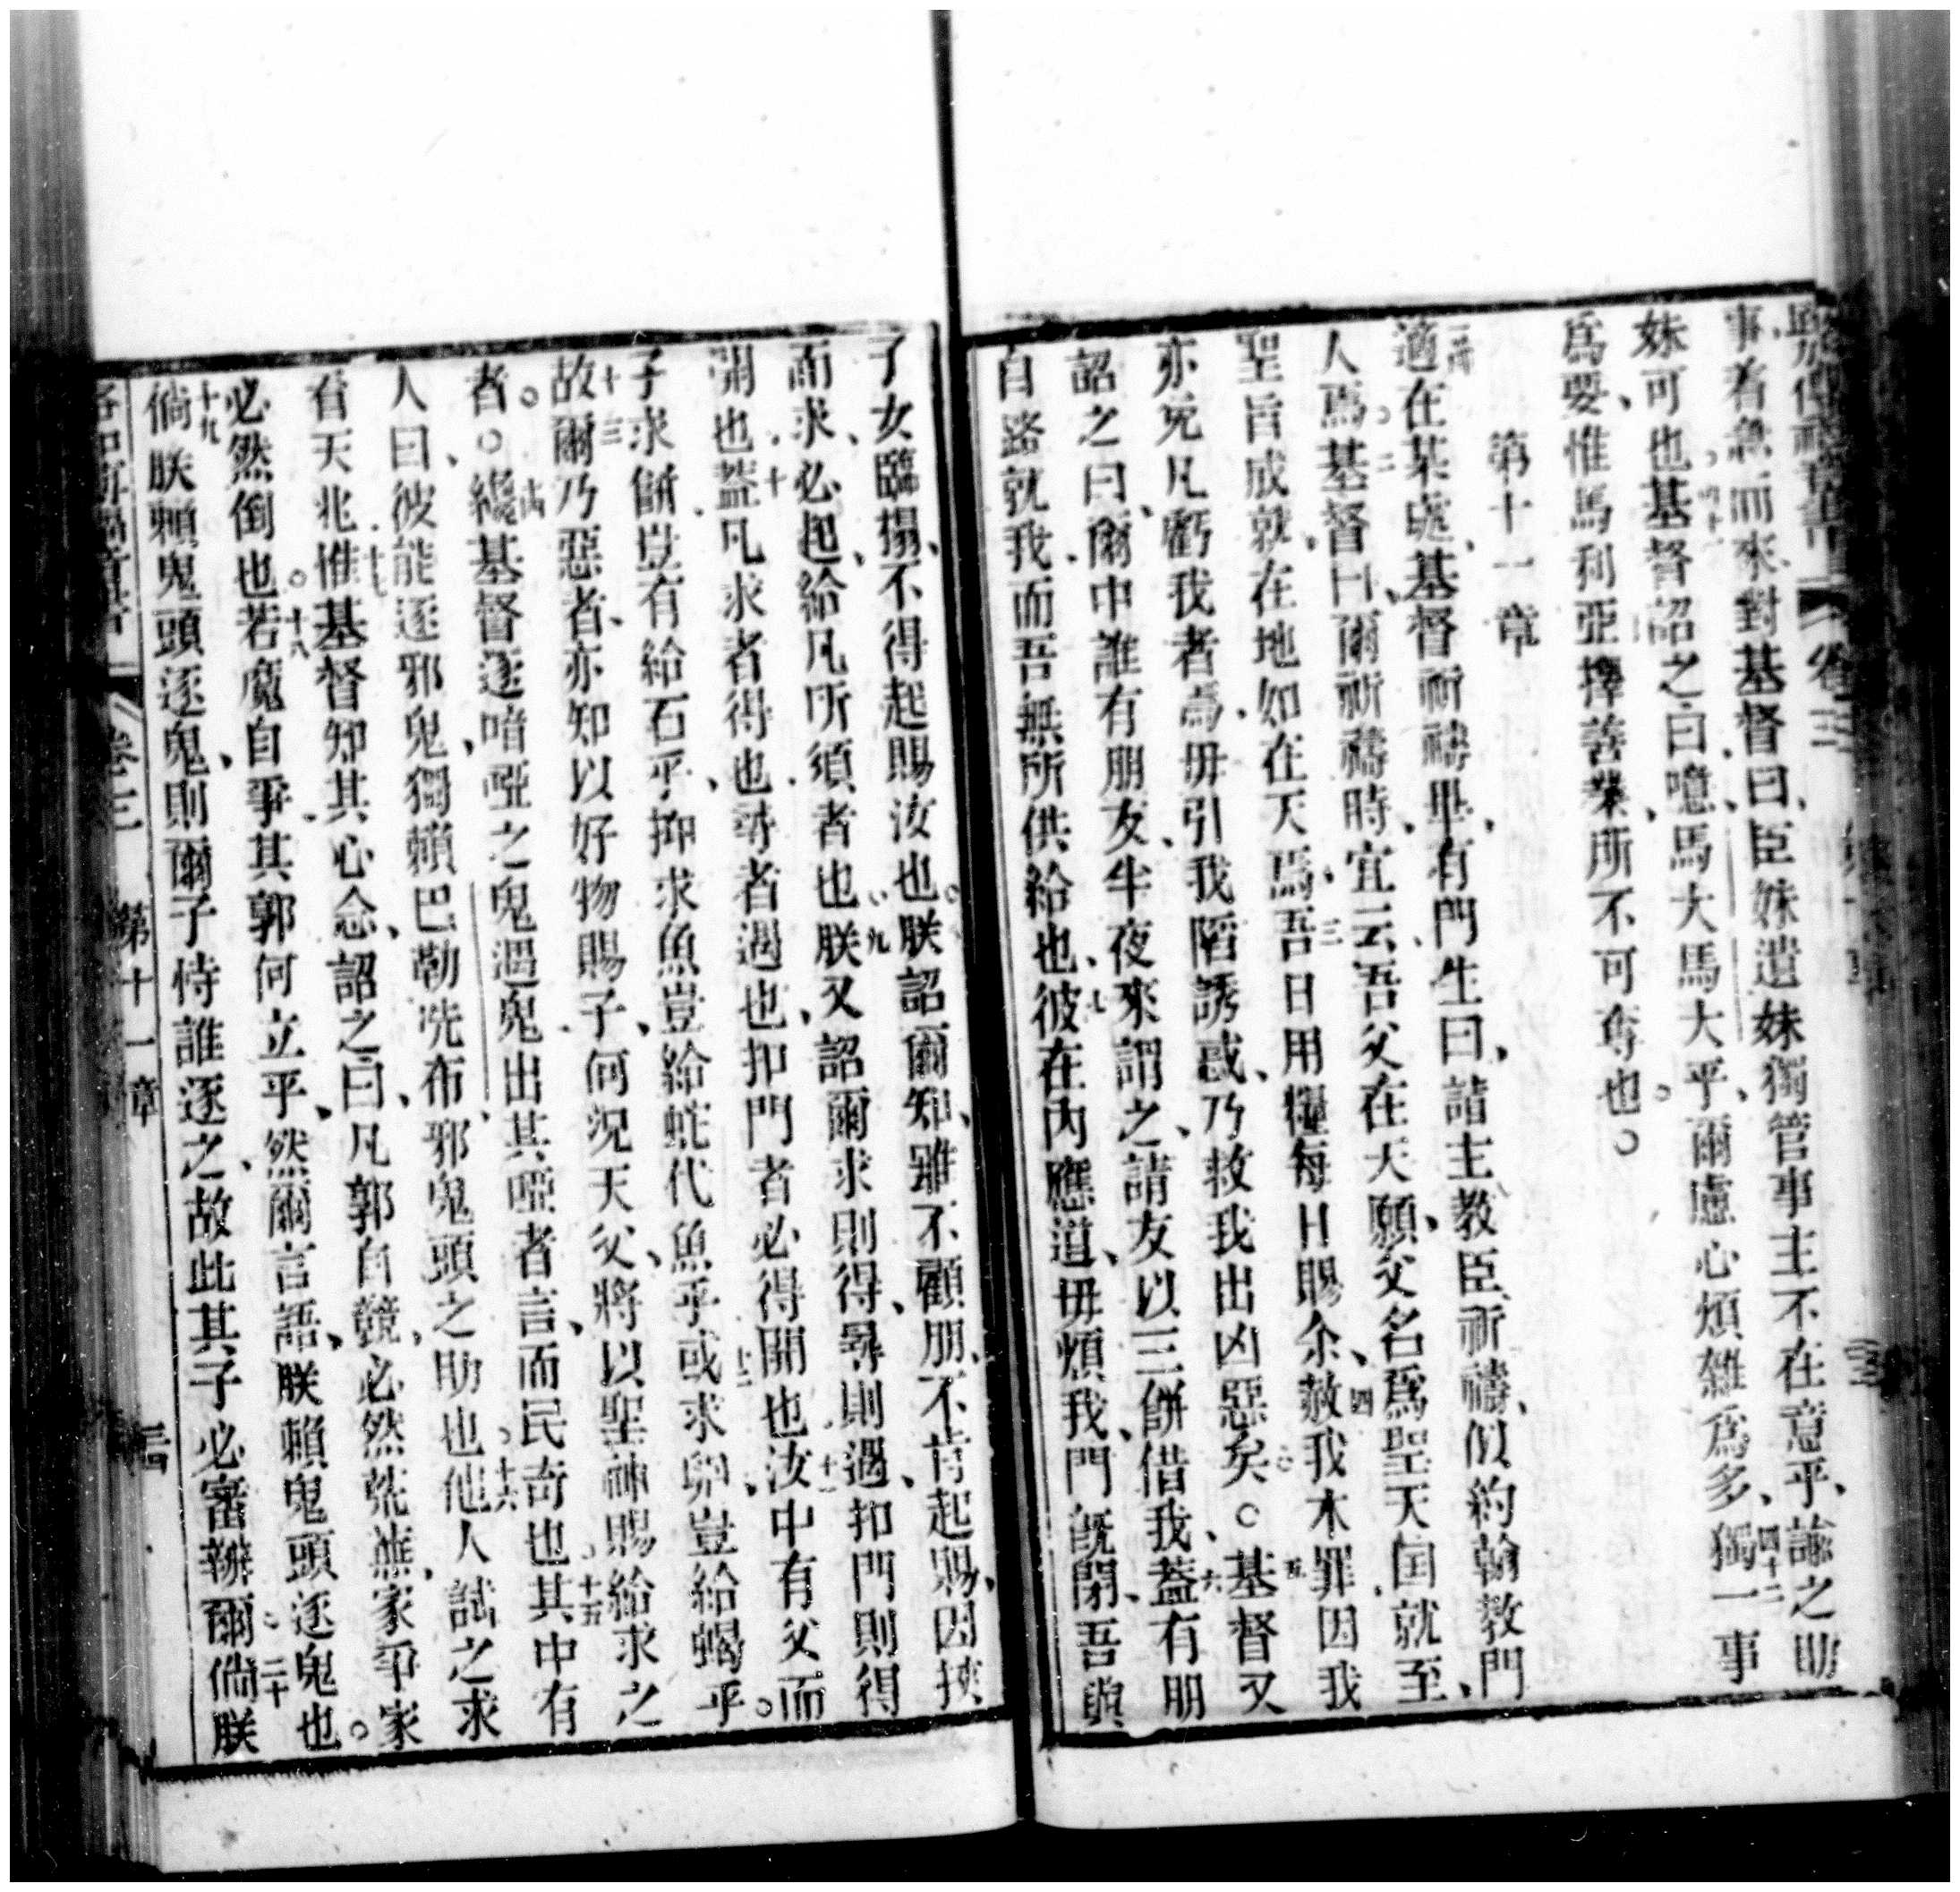 卷三
事着急而來對基督曰、臣妹遺妹獨管事主不在意乎、諭之助
妹可也基督詔之曰噫、馬大馬大乎爾慮心煩雜爲多、四十二獨一事
爲要、惟馬利亞擇善業、所不可奪也。
第十一章
適在某處、基督祈禱畢、有門生曰、請主教臣祈禱、似約翰教門
人焉二基督曰、爾祈禱時、宜云、吾父在天、願父名爲聖天国就至、
聖旨成就、在地如在天焉三吾日用糧每日賜余、四赦我本罪因我
亦免凡虧我者焉、毋引我陷誘惑、乃救我出凶惡矣。五基督又
詔之曰、爾中誰有朋友、半夜來謂之、請友以三餅借我、六蓋有朋
自路就我、而吾無所供給也、七彼在內應道、毋煩我、門既閉、吾與
子女臨榻、不得起賜汝也。朕詔爾知、雖不顧朋、不肯起賜、因挾
而求、必起、給凡所須者也、九朕又詔爾求則得、尋則遇、扣門則得
開也、十蓋凡求者得也、尋者遇也、扣門者必得開也、十一汝中有父而
子求餅豈有給石乎、抑求魚豈給蛇代魚乎、十二或求卵、豈給蝎乎。
十三故爾乃惡者、亦知以好物賜子、何況天父、將以聖神賜給求之
者。○纔基督逐喑啞之鬼遇鬼出其啞者言、而民奇也、十五其中有
人曰、彼能逐邪鬼、獨賴巴勒冼布、邪鬼頭之助也、十六他人試之求
看天兆、十七惟基督知其心念、詔之曰、凡郭自競、必然荒蕪、家爭家
必然倒也。十八若魔自爭、其郭何立乎、然爾言語、朕賴鬼頭逐鬼也。
十九倘朕賴鬼頭逐鬼、則爾子恃誰逐之、故此其子必審辨爾、二十倘朕
卷三 第十一章